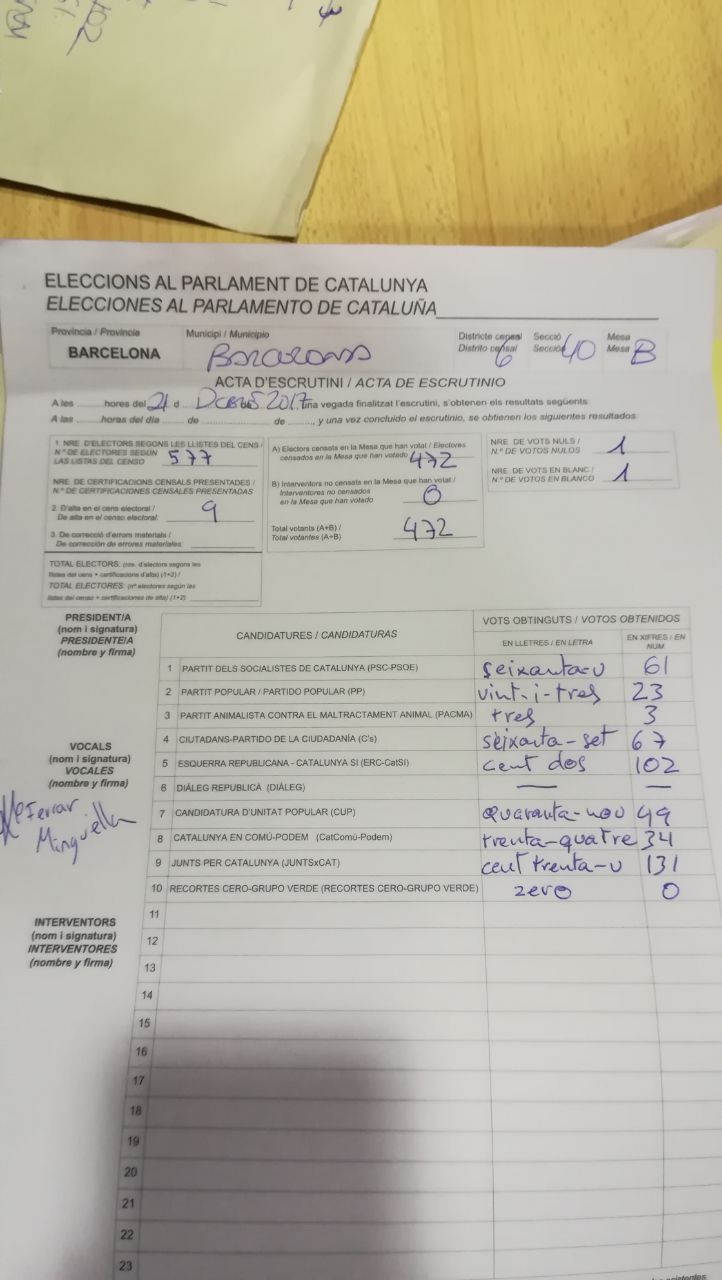 102
ELECCIONS AL PARLAMENT DE CATALUNYA
ELECCIONES AL PARLAMENTO DE CATALUÑA
Provincia / Provincia Municipi / Municipio Districte censal Secció Mesa
Distrito censal 6 Sección 40 Mesa B
BARCELONA Barcelona
ACTA D'ESCRUTINI / ACTA DE ESCRUTINIO
A les ........ hores del 21 d 2017 una vegada finalitzat l'escrutini, s'obtenen els resultats següents:
A las ........ horas del día ........ de ........ de ........, y una vez concluido el escrutinio, se obtienen los siguientes resultados:
1. NRE. D'ELECTORS SEGONS LES LLISTES DEL CENS /
N.º DE ELECTORES SEGÚN
LAS LISTAS DEL CENSO 577
NRE. DE CERTIFICACIONS CENSALS PRESENTADES /
N.º DE CERTIFICACIONES CENSALES PRESENTADAS
2. D'alta en el cens electoral /
De alta en el censo electoral: 9
3. De correcció d'errors materials /
De corrección de errores materiales:
TOTAL ELECTORS: (nre. d'electors segons les
llistes del cens + certificacions d'alta) (1+2) /
TOTAL ELECTORES: (nº electores según las
listas del censo + certificaciones de alta) (1+2)
A) Electors censats en la Mesa que han votat / Electores
censados en la Mesa que han votado 472
B) Interventors no censats en la Mesa que han votat /
Interventores no censados
en la Mesa que han votado 0
Total votants (A+B) /
Total votantes (A+B) 472
NRE. DE VOTS NULS /
N.º DE VOTOS NULOS 1
NRE. DE VOTS EN BLANC /
N.º DE VOTOS EN BLANCO 1
PRESIDENT/A
(nom i signatura)
PRESIDENTE/A
(nombre y firma)
VOCALS
(nom i signatura)
VOCALES
(nombre y firma)
Ferrar
Minguella
INTERVENTORS
(nom i signatura)
INTERVENTORES
(nombre y firma)
CANDIDATURES / CANDIDATURAS VOTS OBTINGUTS / VOTOS OBTENIDOS
EN LLETRES / EN LETRA EN XIFRES / EN NUM
1 PARTIT DELS SOCIALISTES DE CATALUNYA (PSC-PSOE) seixanta-u 61
2 PARTIT POPULAR / PARTIDO POPULAR (PP) vint-i-tres 23
3 PARTIT ANIMALISTA CONTRA EL MALTRACTAMENT ANIMAL (PACMA) tres 3
4 CIUTADANS-PARTIDO DE LA CIUDADANÍA (C's) seixanta-set 67
5 ESQUERRA REPUBLICANA - CATALUNYA SI (ERC-CatSí) cent dos 102
6 DIÀLEG REPUBLICÀ (DIÀLEG) — —
7 CANDIDATURA D'UNITAT POPULAR (CUP) quaranta-nou 49
8 CATALUNYA EN COMÚ-PODEM (CatComú-Podem) trenta-quatre 34
9 JUNTS PER CATALUNYA (JUNTSxCAT) cent trenta-u 131
10 RECORTES CERO-GRUPO VERDE (RECORTES CERO-GRUPO VERDE) zero 0
11
12
13
14
15
16
17
18
19
20
21
22
23